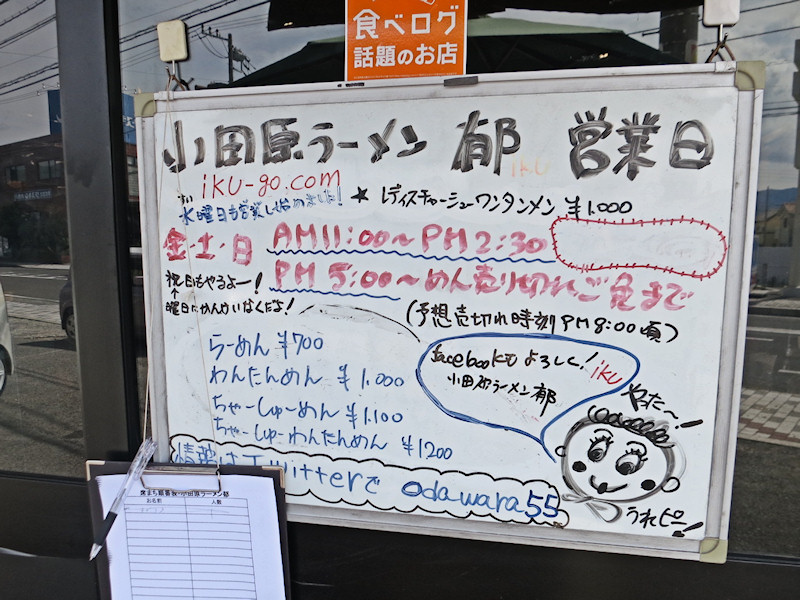 食べログ
話題のお店
小田原ラーメン 郁 営業日
iku
iKU-go.com
水曜日も営業し始めました!
★ レディスチャーシューワンタンメン ¥1.000
金・土・日 AM11:00〜PM2:30
祝日もやるよー!
PM 5:00〜めん売り切れご免まで
↑
曜日にかんかいなくだよ!
(予想売切れ時刻PM8:00頃)
らーめん ¥700
わんたんめん ¥1.000
ちゃーしゅーめん ¥1.100
ちゃーしゅーわんたんめん ¥1200
facebookもよろしく!
iKU
小田原ラーメン 郁
やった〜!
うれピー!
情報はTwitterで Odawara55
席まち順番表・小田原ラーメン郁
お名前 人数